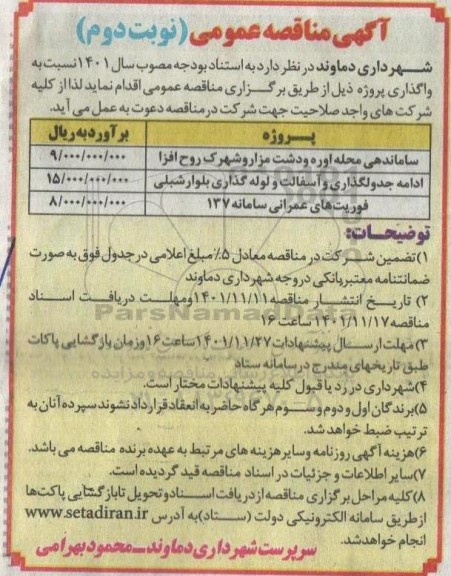 آگهی مناقصه عمومی (نوبت دوم)
شهرداری دماوند در نظر دارد به استناد بودجه مصوب سال ۱۴۰۱ نسبت به
واگذاری پروژه ذیل از طریق برگزاری مناقصه عمومی اقدام نماید لذا از کلیه
شرکت های واجد صلاحیت جهت شرکت در مناقصه دعوت به عمل می آید.
پروژه برآورد به ریال
ساماندهی محله اوره ودشت مزار وشهرک روح افزا ۹/۰۰۰/۰۰۰/۰۰۰
ادامه جدولگذاری و آسفالت و لوله گذاری بلوار شبلی ۱۵/۰۰۰/۰۰۰/۰۰۰
فوریت‌های عمرانی سامانه ۱۳۷ ۸/۰۰۰/۰۰۰/۰۰۰
توضیحات:
۱)تضمین شرکت در مناقصه معادل ۵٪ مبلغ اعلامی در جدول فوق به صورت
ضمانتنامه معتبربانکی در وجه شهرداری دماوند
۲) تاریخ انتشار مناقصه ۱۴۰۱/۱۱/۱۱ ومهلت دریافت اسناد
مناقصه ۱۴۰۱/۱۱/۱۷ ساعت ۱۶
ParsNamadData
۳)مهلت ارسال پیشنهادات ۱۴۰۱/۱۱/۲۷ ساعت ۱۶ وزمان بازگشایی پاکات
طبق تاریخهای مندرج در سامانه ستاد
۴)شهرداری در رد یا قبول کلیه پیشنهادات مختار است.
۵)برندگان اول و دوم و سوم هر گاه حاضر به انعقاد قرارداد نشوند سپرده آنان به
ترتیب ضبط خواهد شد.
۶)هزینه آگهی روزنامه وسایر هزینه های مرتبط به عهده برنده مناقصه می باشد.
۷)سایر اطلاعات و جزئیات در اسناد مناقصه قید گردیده است.
۸)کلیه مراحل برگزاری مناقصه از دریافت اسناد و تحویل تا بازگشایی پاکت‌ها
از طریق سامانه الکترونیکی دولت (ستاد) به آدرس www.setadiran.ir
انجام خواهد شد.
سرپرست شهرداری دماوند_محمود بهرامی